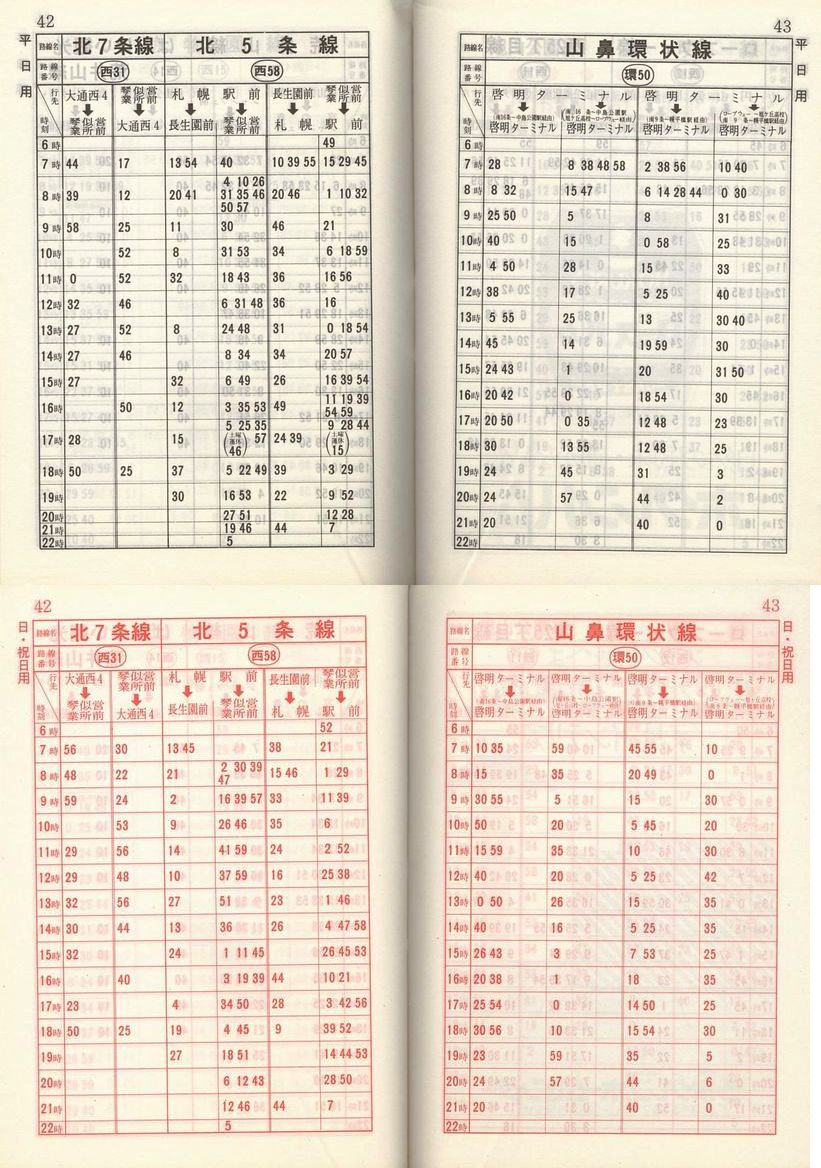 42
平日用
路線名 北7条線 北5条線
路線番号 西31 西58
行先 時刻
大通西4 琴似営業所前 札幌 駅前 長生園前 琴似営業所前
琴似営業所前 大通西4 長生園前 琴似営業所前 札幌 駅前
6時 49
7時 44 17 13 54 40 10 39 55 15 29 45
8時 39 12 20 41 4 10 26 31 35 46 50 57 20 46 1 10 32
9時 58 25 11 30 46 21
10時 52 8 31 53 34 6 18 59
11時 0 52 32 18 43 36 16 56
12時 32 46 6 31 48 36 16
13時 27 52 8 24 48 31 0 18 54
14時 27 46 8 34 34 20 57
15時 27 32 6 49 26 16 39 54
16時 50 12 3 35 53 49 11 19 39 54 59
17時 28 15 5 25 35 (土曜運休46) 57 24 39 9 28 44 (土曜運休15)
18時 50 25 37 5 22 49 39 3 29
19時 30 16 53 22 9 52
20時 27 51 12 28
21時 19 46 44 7
22時 5
43
平日用
路線名 山鼻環状線
路線番号 環50
行先 時刻
啓明ターミナル 啓明ターミナル
(南16条―中島公園駅経由)
啓明ターミナル 啓明ターミナル 啓明ターミナル 啓明ターミナル
6時
7時 28 8 38 48 58 2 38 56 10 40
8時 8 32 15 47 6 14 28 44 0 30
9時 25 50 5 8 31
10時 40 15 0 58 25
11時 4 50 28 15 33
12時 38 17 5 25 40
13時 5 55 25 13 30 40
14時 45 14 19 59 30
15時 24 43 1 20 31 50
16時 20 42 0 18 54 30
17時 20 50 0 35 12 48 23
18時 30 13 55 12 48 25
19時 24 45 31 3
20時 24 57 44 2
21時 20 40 0
22時
42
日・祝日用
路線名 北7条線 北5条線
路線番号 西31 西58
行先 時刻
大通西4 琴似営業所前 札幌 駅前 長生園前 琴似営業所前
琴似営業所前 大通西4 長生園前 琴似営業所前 札幌 駅前
6時 52
7時 56 30 13 45 38 21
8時 48 22 21 2 30 39 47 15 46 1 29
9時 59 24 2 16 39 57 33 11 39
10時 53 9 26 46 35 6
11時 29 56 14 41 59 24 2 52
12時 29 48 10 37 59 16 25 38
13時 32 56 27 51 23 1 46
14時 30 44 13 36 26 4 47 58
15時 32 24 1 11 45 26 45 53
16時 40 3 19 39 44 10 21
17時 23 4 34 50 28 3 42 56
18時 50 25 19 4 45 9 39 52
19時 27 18 51 14 44 53
20時 6 12 43 28 50
21時 12 46 44 7
22時 5
43
日・祝日用
路線名 山鼻環状線
路線番号 環50
行先 時刻
啓明ターミナル 啓明ターミナル 啓明ターミナル 啓明ターミナル
啓明ターミナル 啓明ターミナル 啓明ターミナル 啓明ターミナル
6時
7時 10 35 59 45 55 10
8時 15 35 20 49 0
9時 30 55 5 15 30
10時 50 20 5 45 20
11時 15 59 35 10 30
12時 40 20 5 25 42
13時 0 50 26 15 35
14時 40 16 5 25 35
15時 26 43 3 7 53 25
16時 20 38 1 18 35
17時 25 54 0 14 50 25
18時 30 56 10 15 54 30
19時 23 59 35 5
20時 24 57 44 6
21時 20 40 0
22時